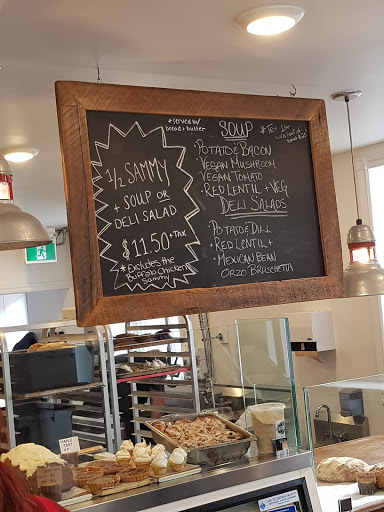 *served w/
bread + butter
1/2 SAMMY
+ SOUP OR
DELI SALAD
$11.50 + TAX
* Excludes the
Buffalo Chicken
Sammy
SOUP
• POTATO & BACON
• VEGAN MUSHROOM
• VEGAN TOMATO
• RED LENTIL + VEG
DELI SALADS
• POTATO DILL
• RED LENTIL +
• MEXICAN BEAN
ORZO BRUSCHETTA
MAPLE